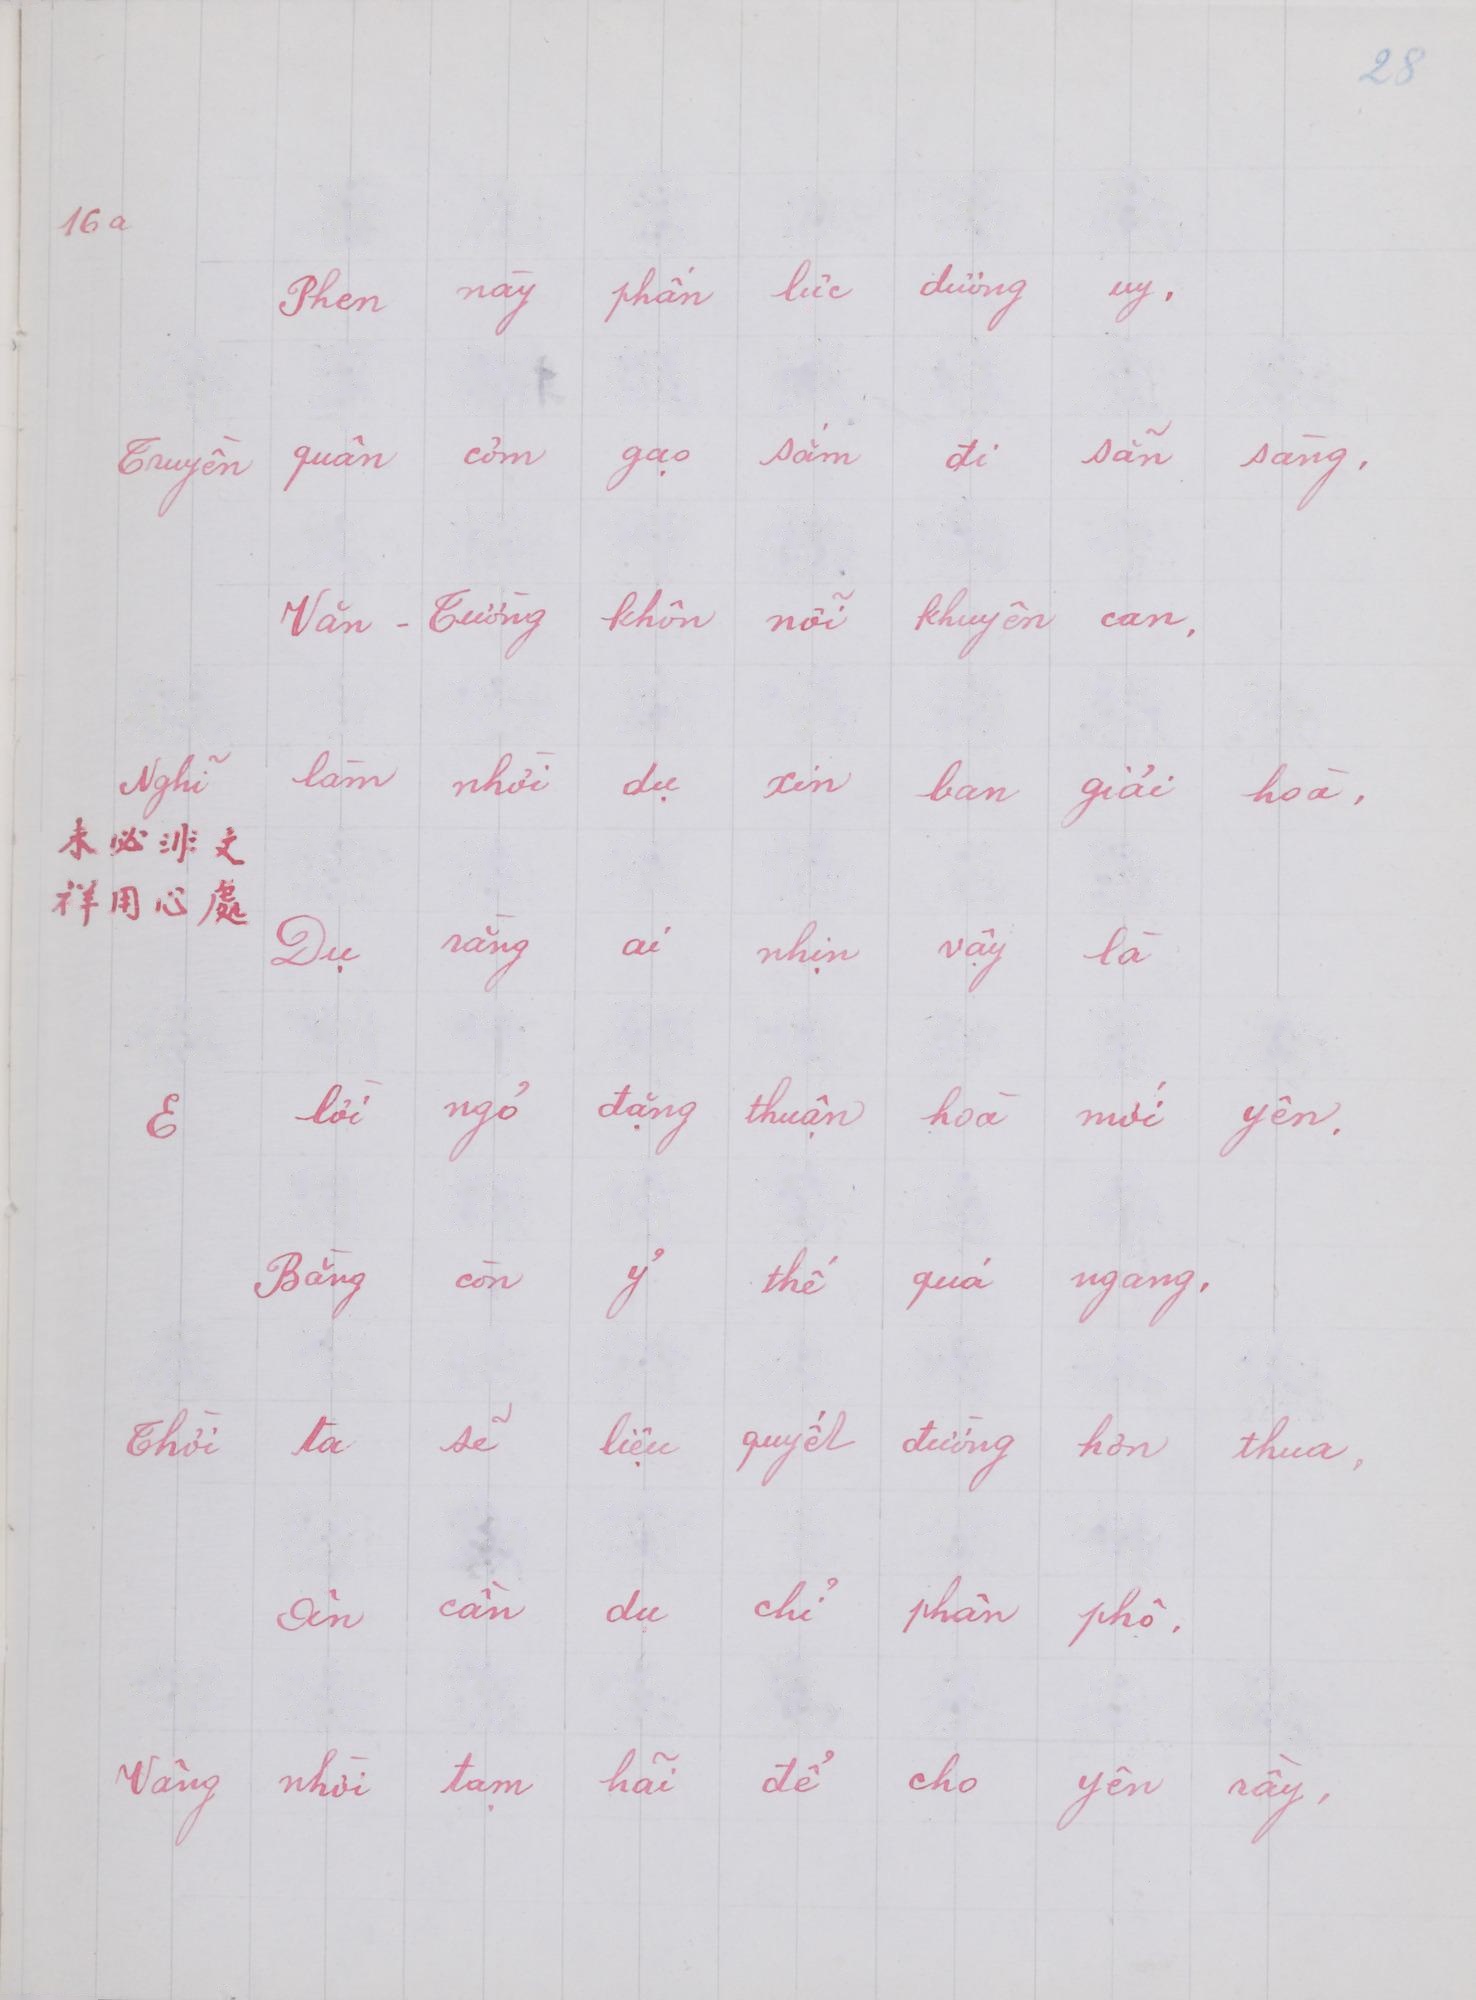 28
16a
Phen này phấn lực dương uy.
Truyền quân cơm gạo sắm đi sẵn sàng.
Văn - Tường khôn nỗi khuyên can,
Nghĩ làm nhời dụ xin ban giải hoà.
未必非文
祥用心處
Dụ rằng ai nhịn vậy là
E lời ngỏ đặng thuận hoà mới yên.
Bằng còn ỷ thế quá ngang.
Thời ta sẽ liệu quyết đường hơn thua.
Ân cần dụ chỉ phân phô.
Vâng nhời tạm hãi để cho yên rầy.